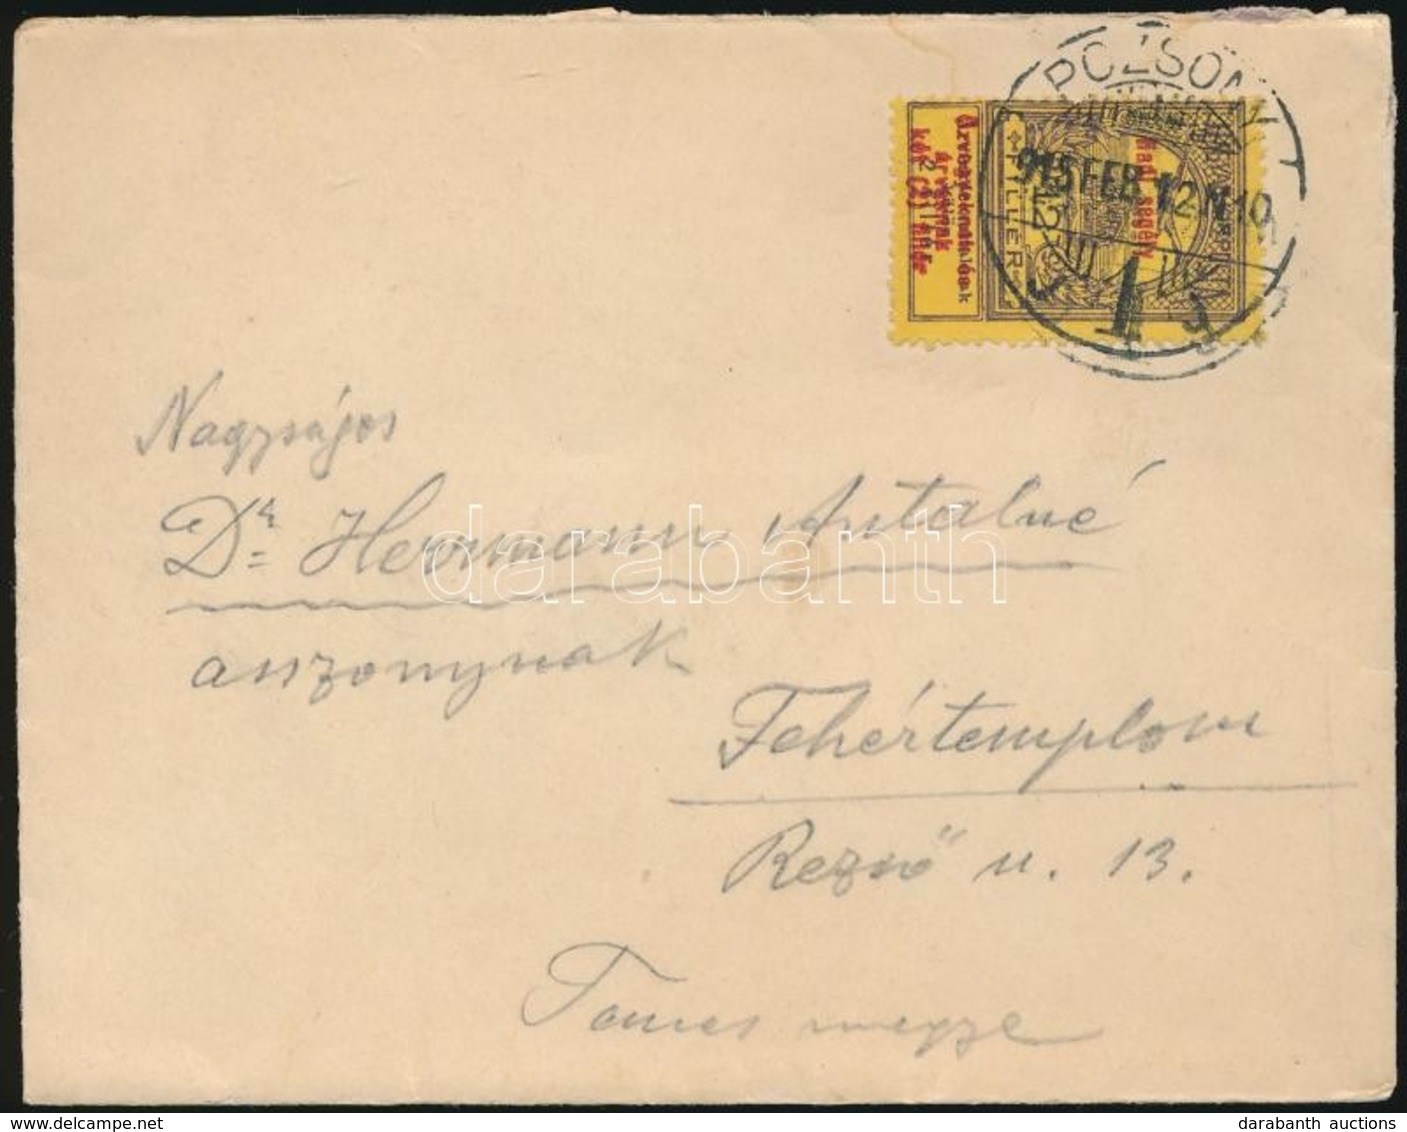 POZSONY
915 FEB 12 N 10
1
Hadi segély
12
FILLÉR
Nagyságos
Dr. Herrmann Antalné
asszonynak
Fehértemplom
Rezső u. 13.
Temes megye
darabanth
darabanth auctions